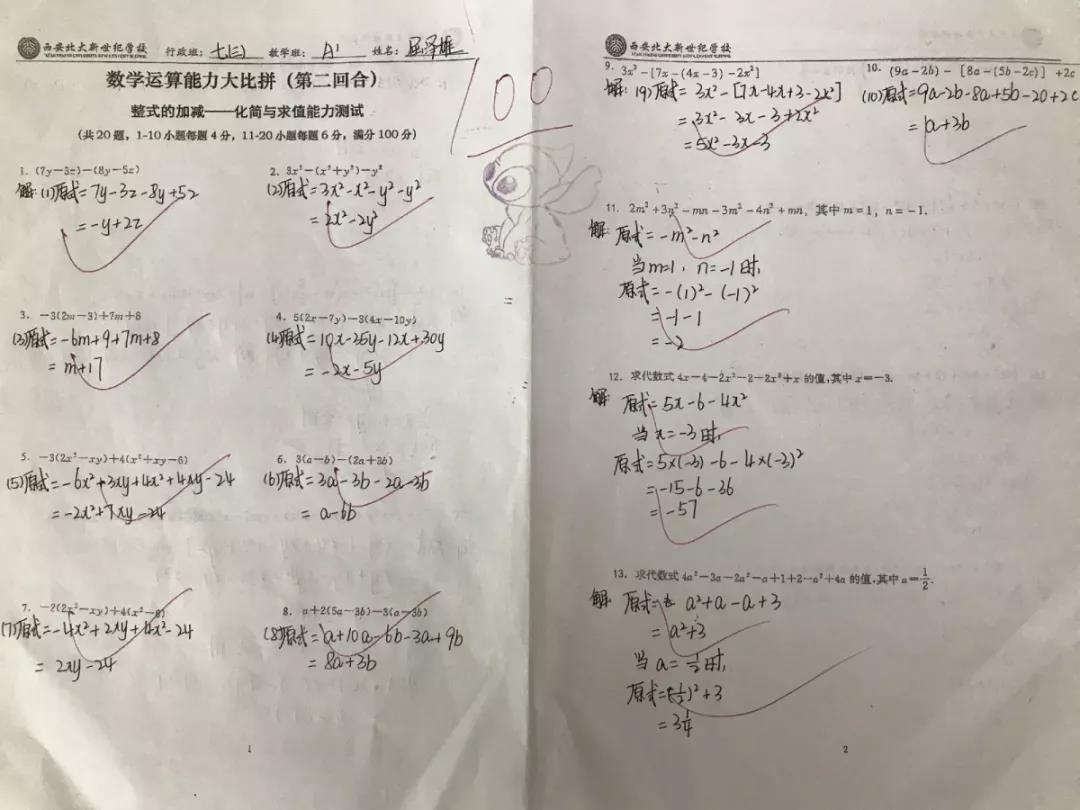 西安北大新世纪学校
行政班：七(三) 教学班：A¹ 姓名：屈泽雄
数学运算能力大比拼（第二回合）
整式的加减——化简与求值能力测试
（共20题，1-10小题每题4分，11-20小题每题6分，满分100分）
100
1. (7y-3z)-(8y-5z)
解:(1)原式=7y-3z-8y+5z
=-y+2z
2. 3x²-(x²+y²)-y²
(2)原式=3x²-x²-y²-y²
=2x²-2y²
3. -3(2m-3)+7m+8
(3)原式=-6m+9+7m+8
=m+17
4. 5(2x-7y)-3(4x-10y)
(4)原式=10x-35y-12x+30y
=-2x-5y
5. -3(2x²-xy)+4(x²+xy-6)
(5)原式=-6x²+3xy+4x²+4xy-24
=-2x²+7xy-24
6. 3(a-b)-(2a+3b)
(6)原式=3a-3b-2a-3b
=a-6b
7. -2(2x²-xy)+4(x²-6)
(7)原式=-4x²+2xy+4x²-24
=2xy-24
8. a+2(5a-3b)-3(a-3b)
(8)原式=a+10a-6b-3a+9b
=8a+3b
1
西安北大新世纪学校
9. 3x²-[7x-(4x-3)-2x²]
解:(9)原式=3x²-[7x-4x+3-2x²]
=3x²-3x-3+2x²
=5x²-3x-3
10. (9a-2b)-[8a-(5b-2c)]+2c
(10)原式=9a-2b-8a+5b-2c+2c
=a+3b
11. 2m²+3n²-mn-3m²-4n²+mn，其中m=1，n=-1.
解:原式=-m²-n²
当m=1，n=-1时,
原式=-(1)²-(-1)²
=-1-1
=-2
12. 求代数式4x-4-2x²-2-2x²+x的值,其中x=-3.
解:原式=5x-6-4x²
当x=-3时,
原式=5×(-3)-6-4×(-3)²
=-15-6-36
=-57
13. 求代数式4a²-3a-2a²-a+1+2-a²+4a的值,其中a=1/2.
解:原式=a²+a-a+3
=a²+3
当a=1/2时,
原式=(1/2)²+3
=3 1/4
2